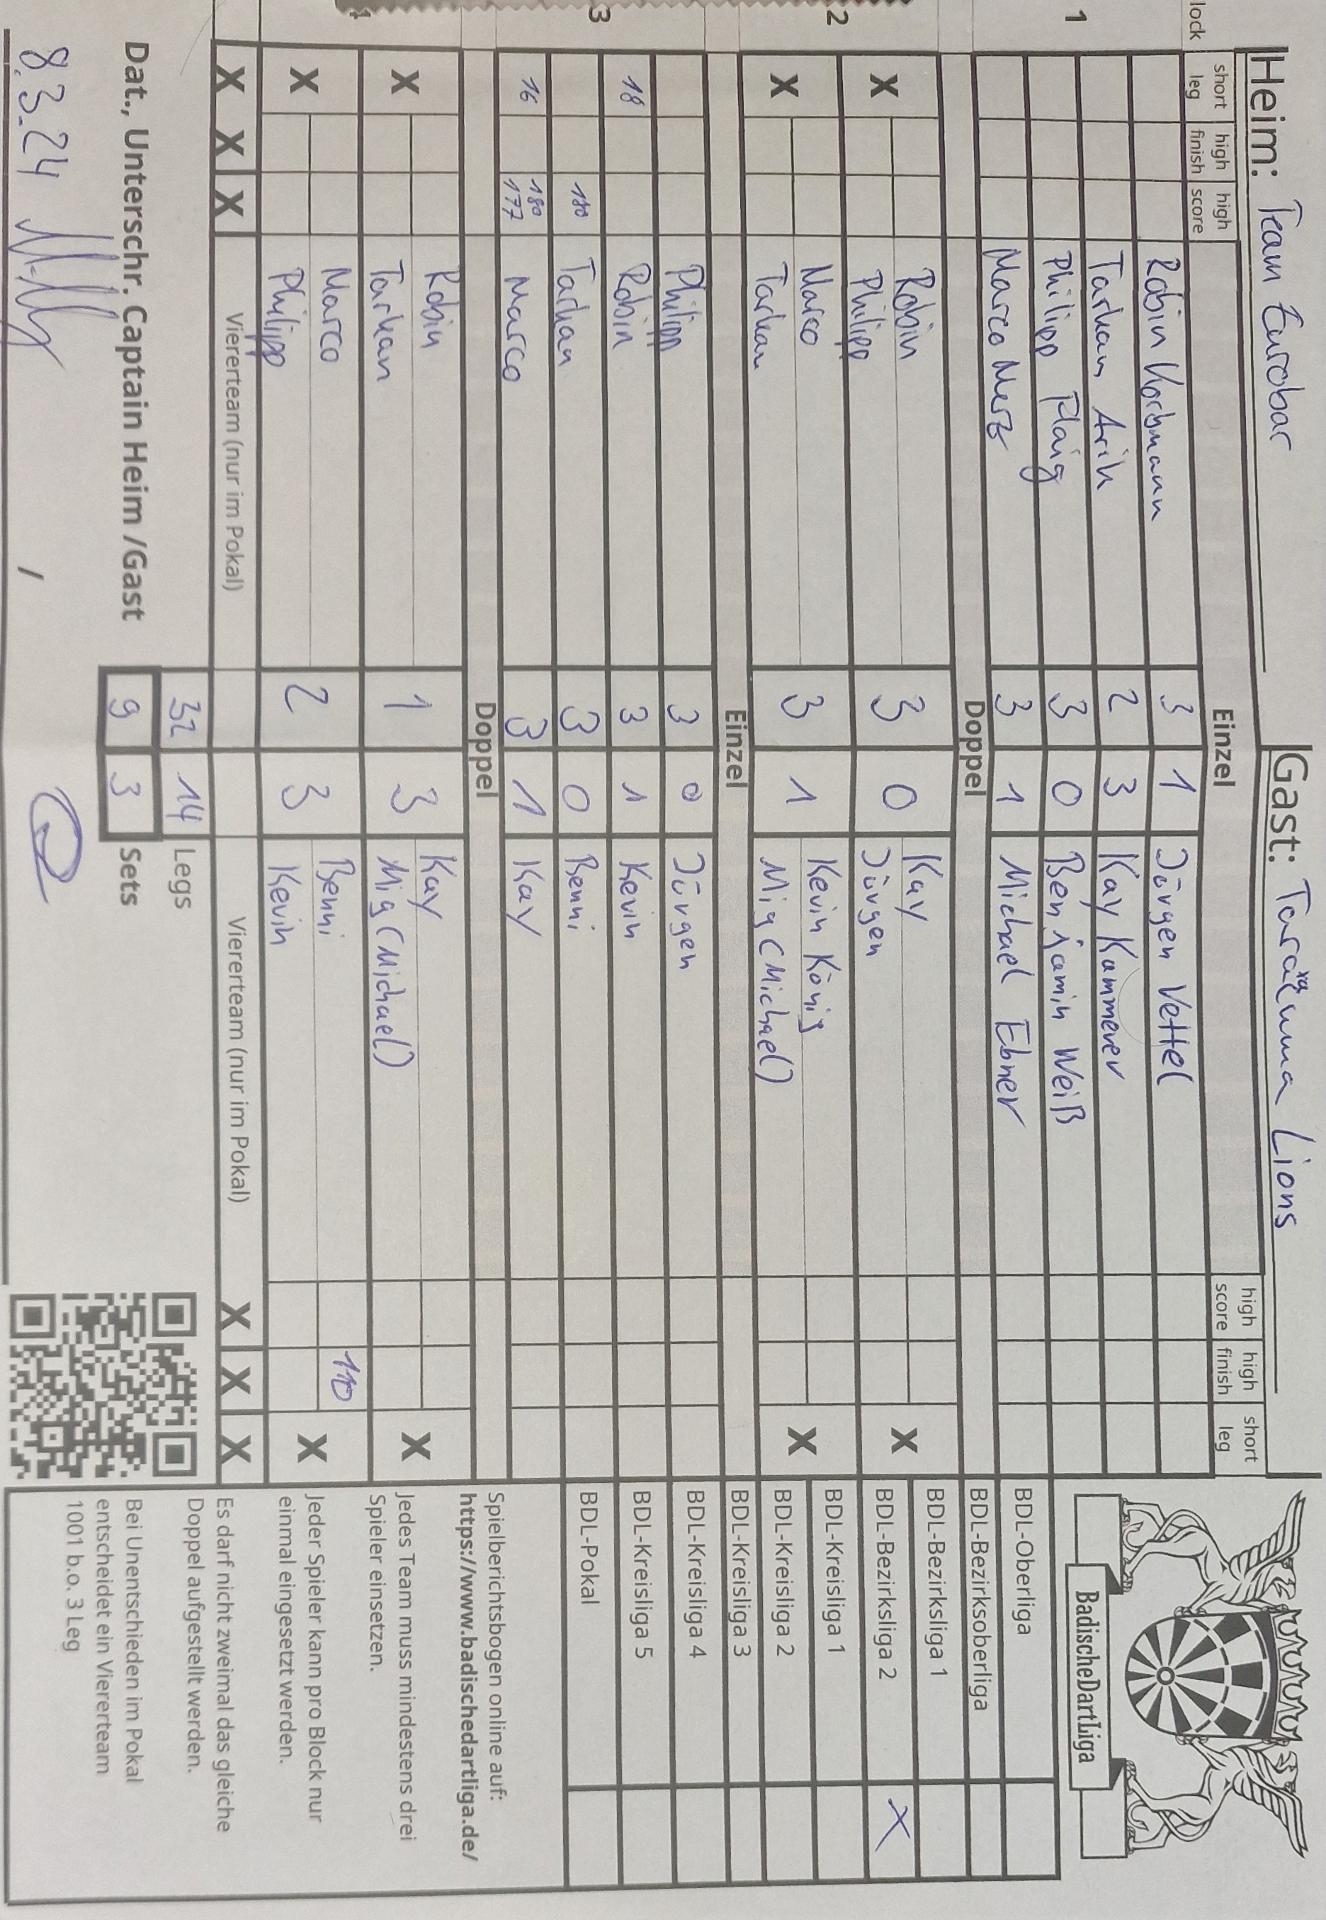 Heim: Team Eurobar
Gast: Taraxuma Lions
lock
short leg
high finish
high score
Einzel
high score
high finish
short leg
1
Robin Korbmann 3 1 Jürgen Vettel
Tarkan Arik 2 3 Kay Kammerer
Philipp Plaig 3 0 Benjamin Weiß
Marco Merz 3 1 Michael Ebner
Doppel
2
Robin Kay
X 3 0 X
Philipp Jürgen
Marco Kevin König
X 3 1 X
Tarkan Mig (Michael)
Einzel
3
Philipp 3 0 Jürgen
18 Robin 3 1 Kevin
180 Tarkan 3 0 Benni
16 180 177 Marco 3 1 Kay
Doppel
4
Robin Kay
X 1 3 X
Tarkan Mig (Michael)
Marco Benni 110
X 2 3 X
Philipp Kevin
X X X Viererteam (nur im Pokal) Viererteam (nur im Pokal) X X X
32 14 Legs
Dat., Unterschr. Captain Heim /Gast 9 3 Sets
8.3.24
BadischeDartLiga
BDL-Oberliga
BDL-Bezirksoberliga
BDL-Bezirksliga 1
BDL-Bezirksliga 2 X
BDL-Kreisliga 1
BDL-Kreisliga 2
BDL-Kreisliga 3
BDL-Kreisliga 4
BDL-Kreisliga 5
BDL-Pokal
Spielberichtsbogen online auf:
https://www.badischedartliga.de/
Jedes Team muss mindestens drei
Spieler einsetzen.
Jeder Spieler kann pro Block nur
einmal eingesetzt werden.
Es darf nicht zweimal das gleiche
Doppel aufgestellt werden.
Bei Unentschieden im Pokal
entscheidet ein Viererteam
1001 b.o. 3 Leg